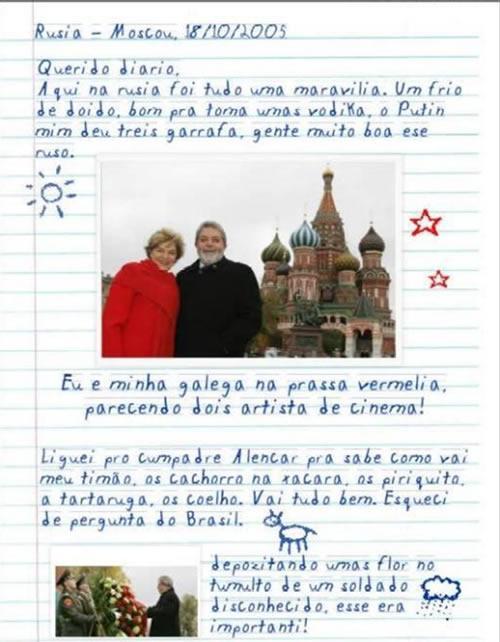 Rusia - Moscou, 18/10/2005
Querido diario,
Aqui na rusia foi tudo uma maravilia. Um frio
de doido, bom pra toma umas vodika, o Putin
mim deu treis garrafa, gente muito boa ese
ruso.
Eu e minha galega na prassa vermelia,
parecendo dois artista de cinema!
Liguei pro cumpadre Alencar pra sabe como vai
meu timão, os cachorro na xacara, os piriquito,
a tartaruga, os coelho. Vai tudo bem. Esqueci
de pergunta do Brasil.
depozitando umas flor no
tumulto de um soldado
disconhecido, esse era
importanti!